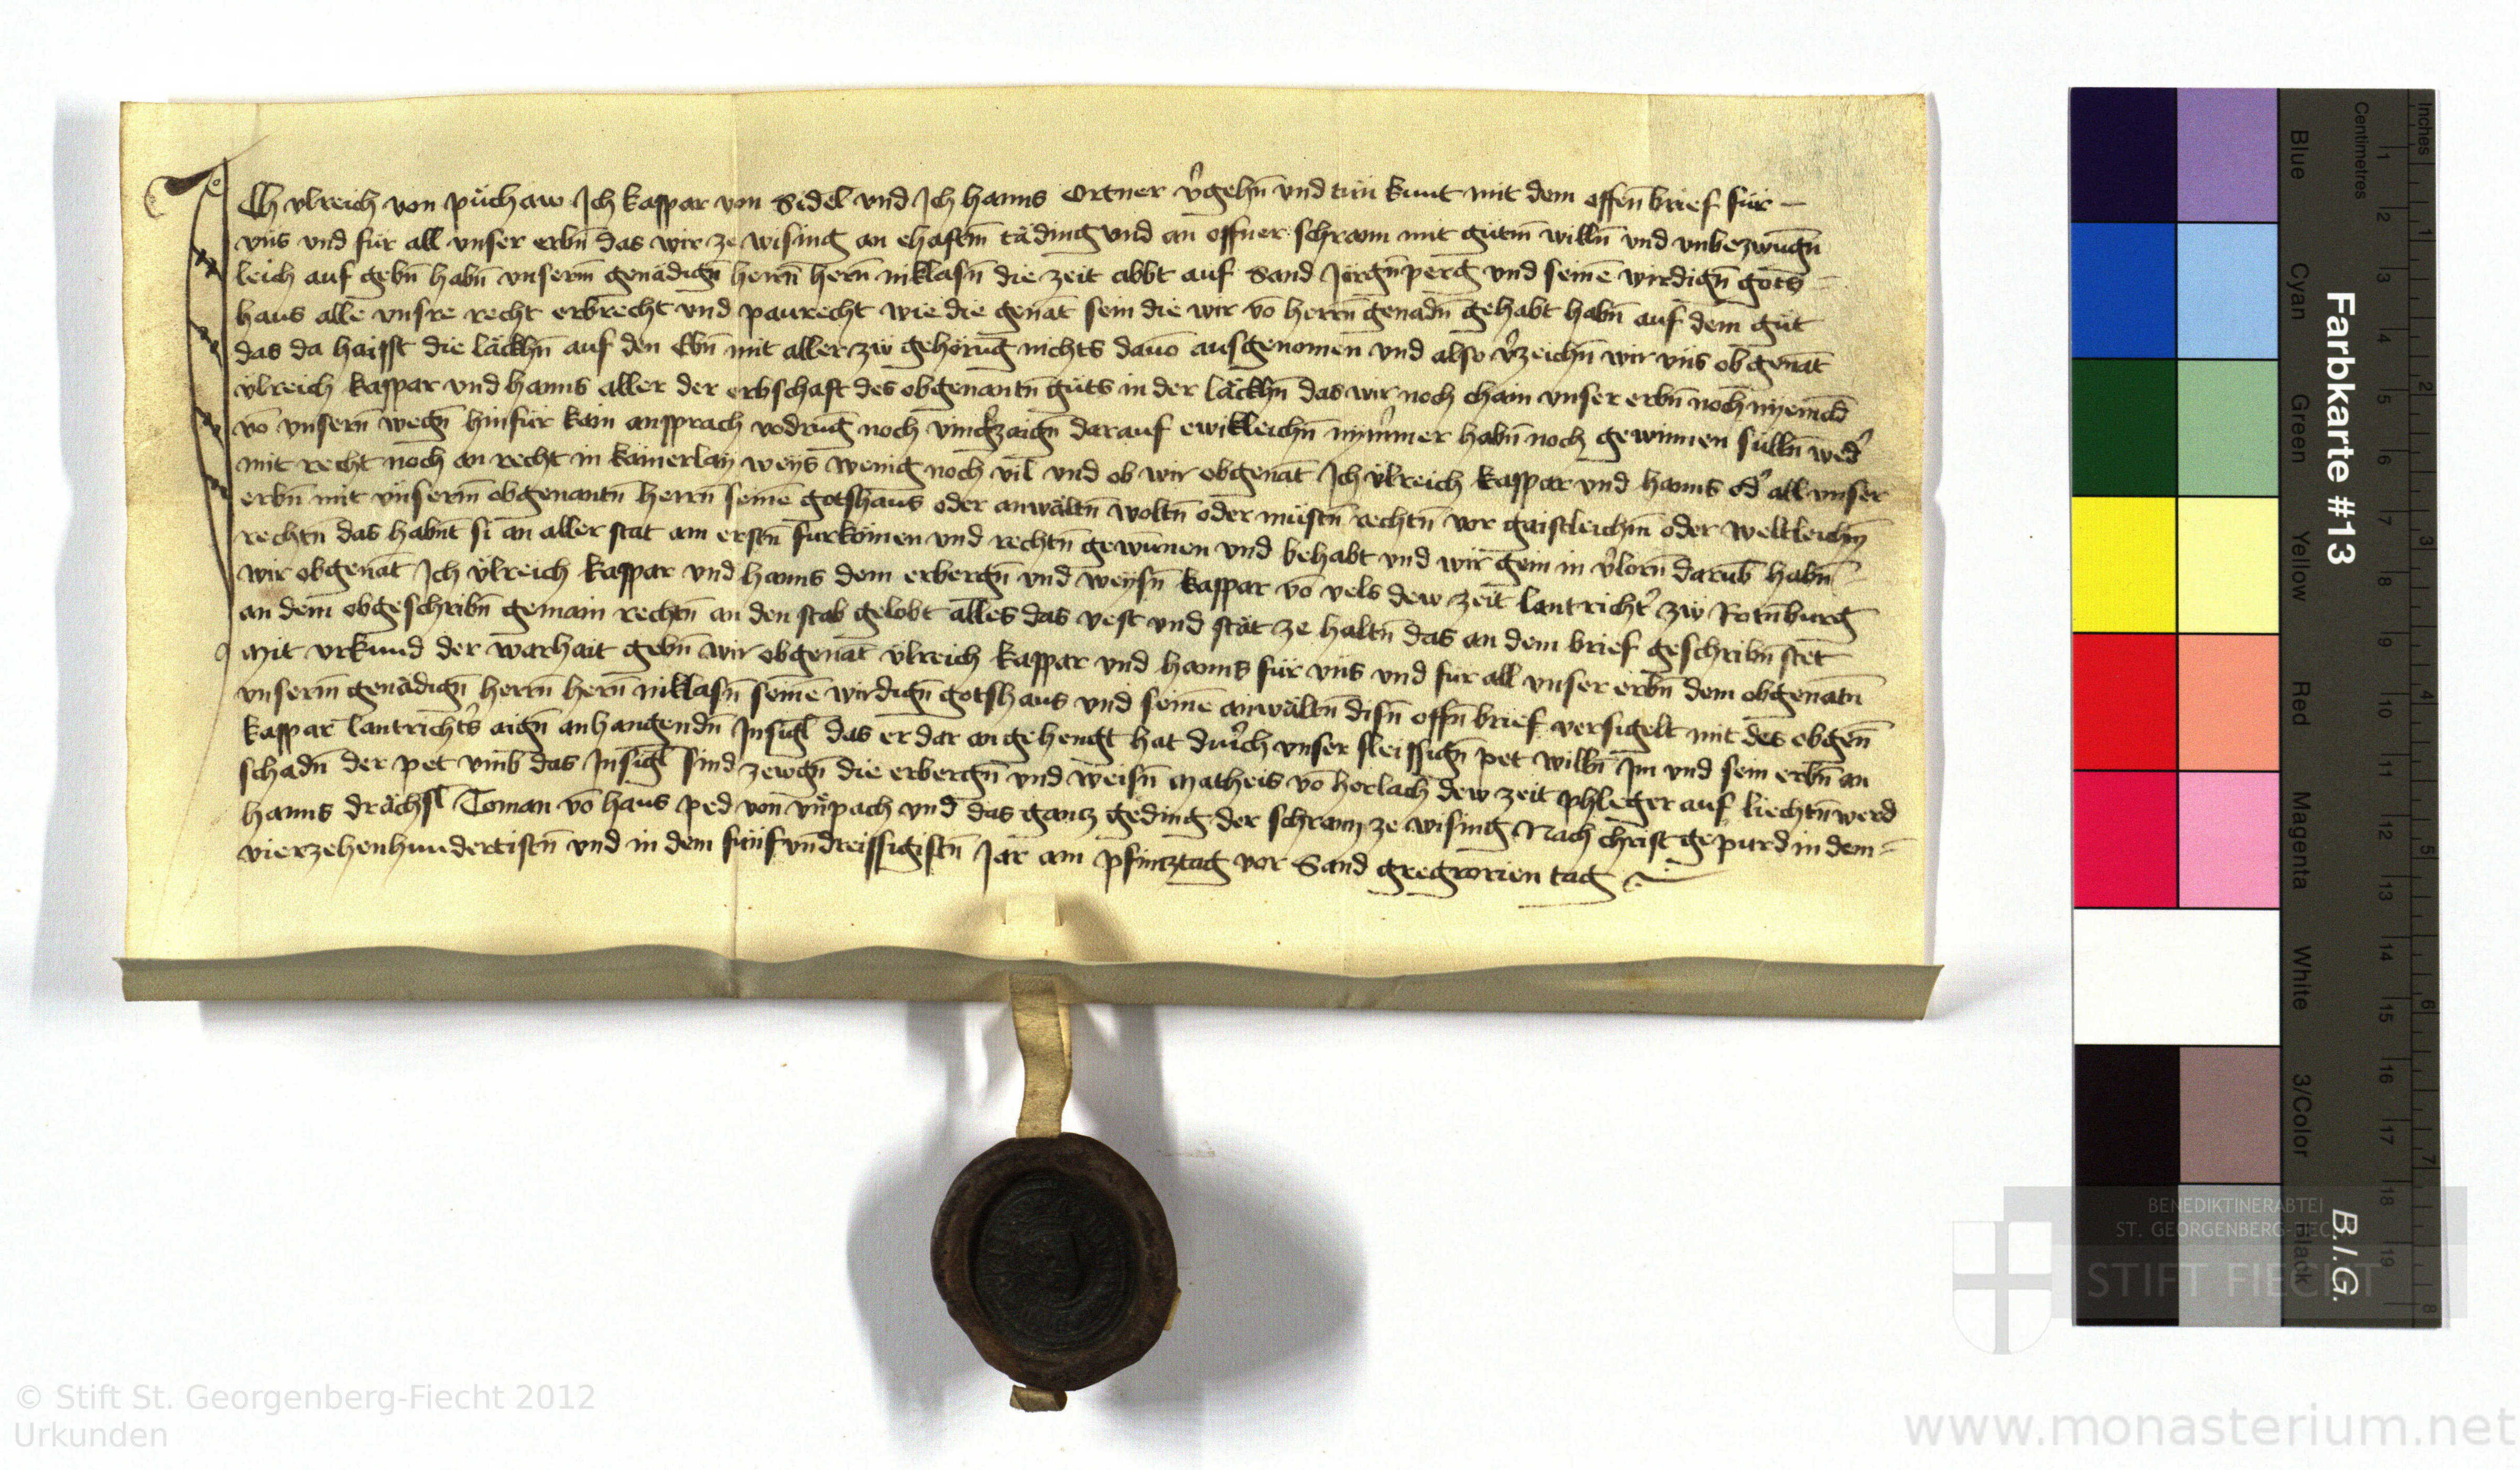 Ich vlreich von půchaw Ich kaspar von Sidel vnd Ich hanns Ortner v̉gehn̄ vnd tůn kunt mit dem offen̄ brief für
vns vnd für all vnser erbn̄ das wir ze wising an ehaftm̄ täding vnd an offner schrann mit gůtm̄ willn̄ vnd vnbezwugn̄
leich auf gebn̄ habn̄ vnserm̄ genädign̄ herrn̄ hern̄ niklasn̄ die zeit abbt auf Sand Jörgn̄perg vnd seinē wirdign̄ gots
haus alle vnsre recht erbrecht vnd paurecht wie die genāt sein die wir vō herrn̄ genadn̄ gehabt habn̄ auf dem gůt
das da haisst die läckhn̄ auf den Ebn̄ mit aller zẘ gehörūg nichts dauō ausgenomen vnd also v̉zeichn̄ wir vns obgenāt
vlreich kaspar vnd hanns aller der erbschaft des obgenantn̄ gůts in der läckhn̄ das wir noch chain vnser erbn̄ noch nyemād
vō vnsern̄ wegn̄ hinfür kain ansprach vodrūg noch darauf ewikleichn̄ nym̄mer habn̄ noch gewinnen sulln̄ wed̉
mit recht noch an recht in kainerlay weys wenig noch vil vnd ob wir obgenāt Ich vlreich kaspar vnd hanns od̉ all vnser
erbn̄ mit vnserm̄ obgenantn̄ herrn̄ seinē gotshaus oder anwältn̄ woltn̄ oder müstn̄ rechtn̄ vor gaistleichm̄ oder weltleichm̄
rechtn̄ das habnt si an aller stat am erstn̄ fürkömen vnd rechtn̄ gewunnen vnd behabt vnd wir gein in v̉lorn̄ darūb habn̄
wir obgenāt Ich vlreich kaspar vnd hanns dem erbergn̄ vnd weysn̄ kaspar vō vels dew zeit lantricht̉ zẘ Rotn̄burg
an dem obgeschribn̄ gemain rechtn̄ an den stab gelobt alles das vest vnd stät ze haltn̄ das an dem brief geschribn̄ stet
Mit vrkund der warhait gebn̄ wir obgenāt vlreich kaspar vnd hanns für vns vnd für all vnser erbn̄ dem obgenatn̄
vnserm̄ genädign̄ herrn̄ hern̄ niklasn̄ seinē wirdign̄ gotshaus vnd seinē anwältn̄ disn̄ offn̄ brief versigelt mit des obgen̄
kaspar lantricht̉s aign̄ anhangendn̄ Insigl das er dar an gehengt hat durch vnser fleissign̄ pet willn̄ Im vnd sein erbn̄ an
schadn̄ der pet vmb das Insigl sind zewgn̄ die erbergn̄ vnd weisn̄ Matheis vō horlach dew zeit phleger auf liechtn̄werd
hanns drächsl Toman vō haus ped von vn̄pach vnd das gancz geding der schrann ze wising Nach christ gepurd in dem
vierzehenhundertistn̄ vnd in dem fünfvndreissigistn̄ Jar am pfincztag vor Sand gregrorien tag
Farbkarte #13
B.I.G.
Inches
Centimetres
Blue
Cyan
Green
Yellow
Red
Magenta
White
3/Color
Black
1 2 3 4 5 6 7 8 9 10 11 12 13 14 15 16 17 18 19
1 2 3 4 5 6 7 8
BENEDIKTINERABTEI
ST. GEORGENBERG-FIECHT
STIFT FIECHT
© Stift St. Georgenberg-Fiecht 2012
Urkunden
www.monasterium.net